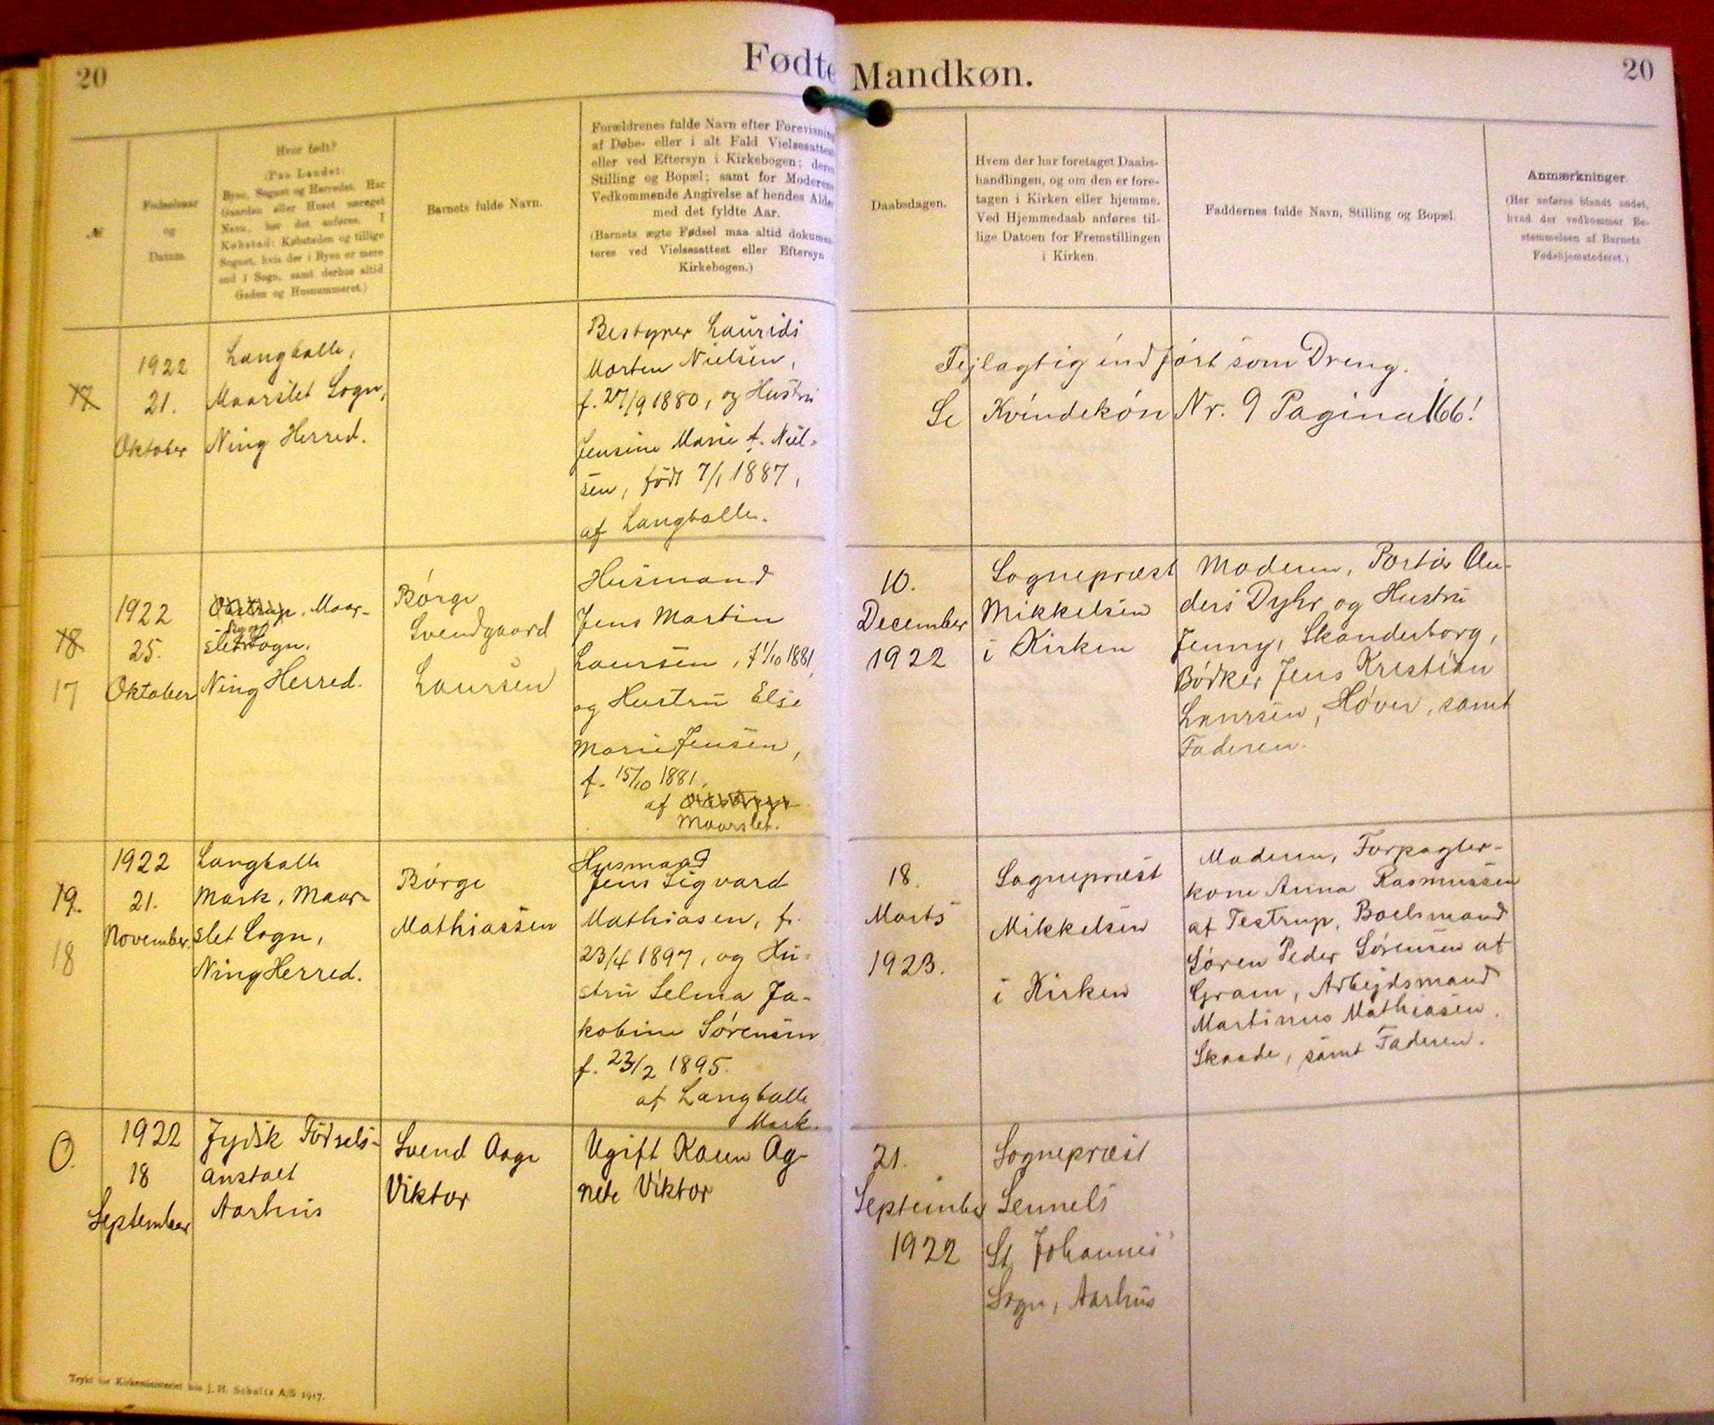 20
Fødte
Mandkøn.
20
№
Fødselsaar
og
Datum.
Hvor født?
(Paa Landet:
Byen, Sognet og Herredet. Har
Gaarden eller Huset særeget
Navn, bør det anføres. I
Købstad: Købstaden og tillige
Sognet, hvis der i Byen er mere
end 1 Sogn, samt derhos altid
Gaden og Husnummeret.)
Barnets fulde Navn.
Forældrenes fulde Navn efter Forevisning
af Døbe- eller i alt Fald Vielsesattest
eller ved Eftersyn i Kirkebogen; deres
Stilling og Bopæl; samt for Moderens
Vedkommende Angivelse af hendes Alder
med det fyldte Aar.
(Barnets ægte Fødsel maa altid dokumen-
teres ved Vielsesattest eller Eftersyn
Kirkebogen.)
Daabsdagen.
Hvem der har foretaget Daabs-
handlingen, og om den er fore-
tagen i Kirken eller hjemme.
Ved Hjemmedaab anføres til-
lige Datoen for Fremstillingen
i Kirken.
Faddernes fulde Navn, Stilling og Bopæl.
Anmærkninger.
(Her anføres blandt andet,
hvad der vedkommer Be-
stemmelsen af Barnets
Fødehjemstederet.)
17
1922
21.
Oktober
Langballe,
Maarslet Sogn,
Ning Herred.
Bestyrer Laurids
Morten Nielsen,
f. 27/9 1880, og Hustru
Jensine Marie f. Niel-
sen, født 7/1 1887,
af Langballe.
Fejlagtig indført som Dreng.
Se Kvindekøn Nr. 9 Pagina 166!
18
17
1922
25.
Oktober
Maar-
slet Sogn,
Ning Herred.
Børge
Svendgaard
Laursen
Husmand
Jens Martin
Laursen, f 1/10 1881,
og Hustru Else
Marie Jensen,
f. 15/10 1881,
af
Maarslet.
10.
December
1922
Sognepræst
Mikkelsen
i Kirken
Moderen, Portør An-
ders Dyhr og Hustru
Jenny, Skanderborg,
Bødker Jens Kristian
Laursen, Høver, samt
Faderen.
19.
18
1922
21.
November
Langballe
Mark, Maar-
slet Sogn,
Ning Herred.
Børge
Mathiassen
Husmand
Jens Sigvard
Mathiasen, f.
23/4 1897, og Hu-
stru Selma Ja-
kobine Sørensen
f. 23/2 1895.
af Langballe
Mark.
18.
Marts
1923.
Sognepræst
Mikkelsen
i Kirken
Moderen, Forpagter-
kone Anna Rasmussen
af Testrup, Boelsmand
Søren Peder Sørensen af
Gram, Arbejdsmand
Martinus Mathiasen,
Skaade, samt Faderen.
O.
1922
18
September
Jydsk Fødsels-
anstalt
Aarhus
Svend Aage
Viktor
Ugift Karen Ag-
nete Viktor
21.
September
1922
Sognepræst
Sennels
St. Johannes
Sogn, Aarhus
Trykt for Kirkeministeriet hos J. H. Schultz A/S 1917.